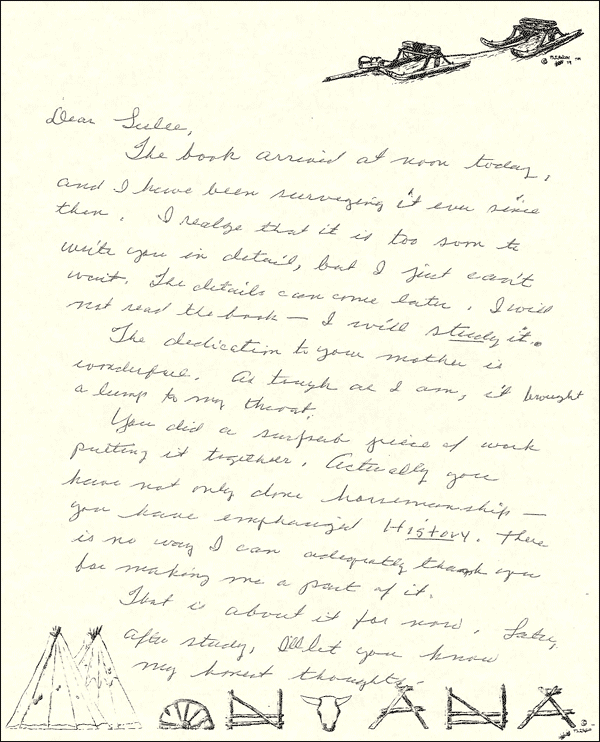 Dear Sulee,
The book arrived at noon today,
and I have been surveying it ever since
then. I realize that it is too soon to
write you in detail, but I just can't
wait. The details can come later. I will
not read the book — I will study it.
The dedication to your mother is
wonderful. As tough as I am, it brought
a lump to my throat.
You did a surpurb piece of work
putting it together. Actually you
have not only done horsemanship —
you have emphasized History. There
is no way I can adequately thank you
for making me a part of it.
That is about it for now. Later,
after study, I'll let you know
my honest thoughts.
MONTANA